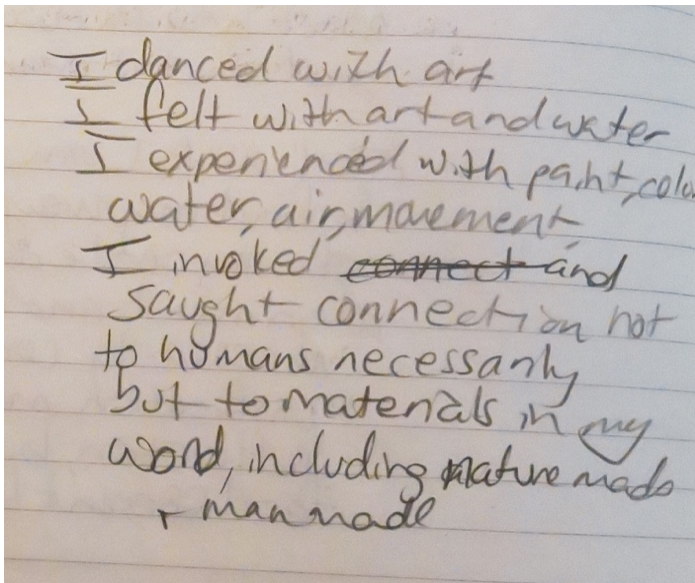 I danced with art
I felt with art and water
I experienced with paint, colo
water, air, movement,
I invoked ~~connect~~ and
saught connection not
to humans necessarily
but to materials in my
world, including nature made
+ man made